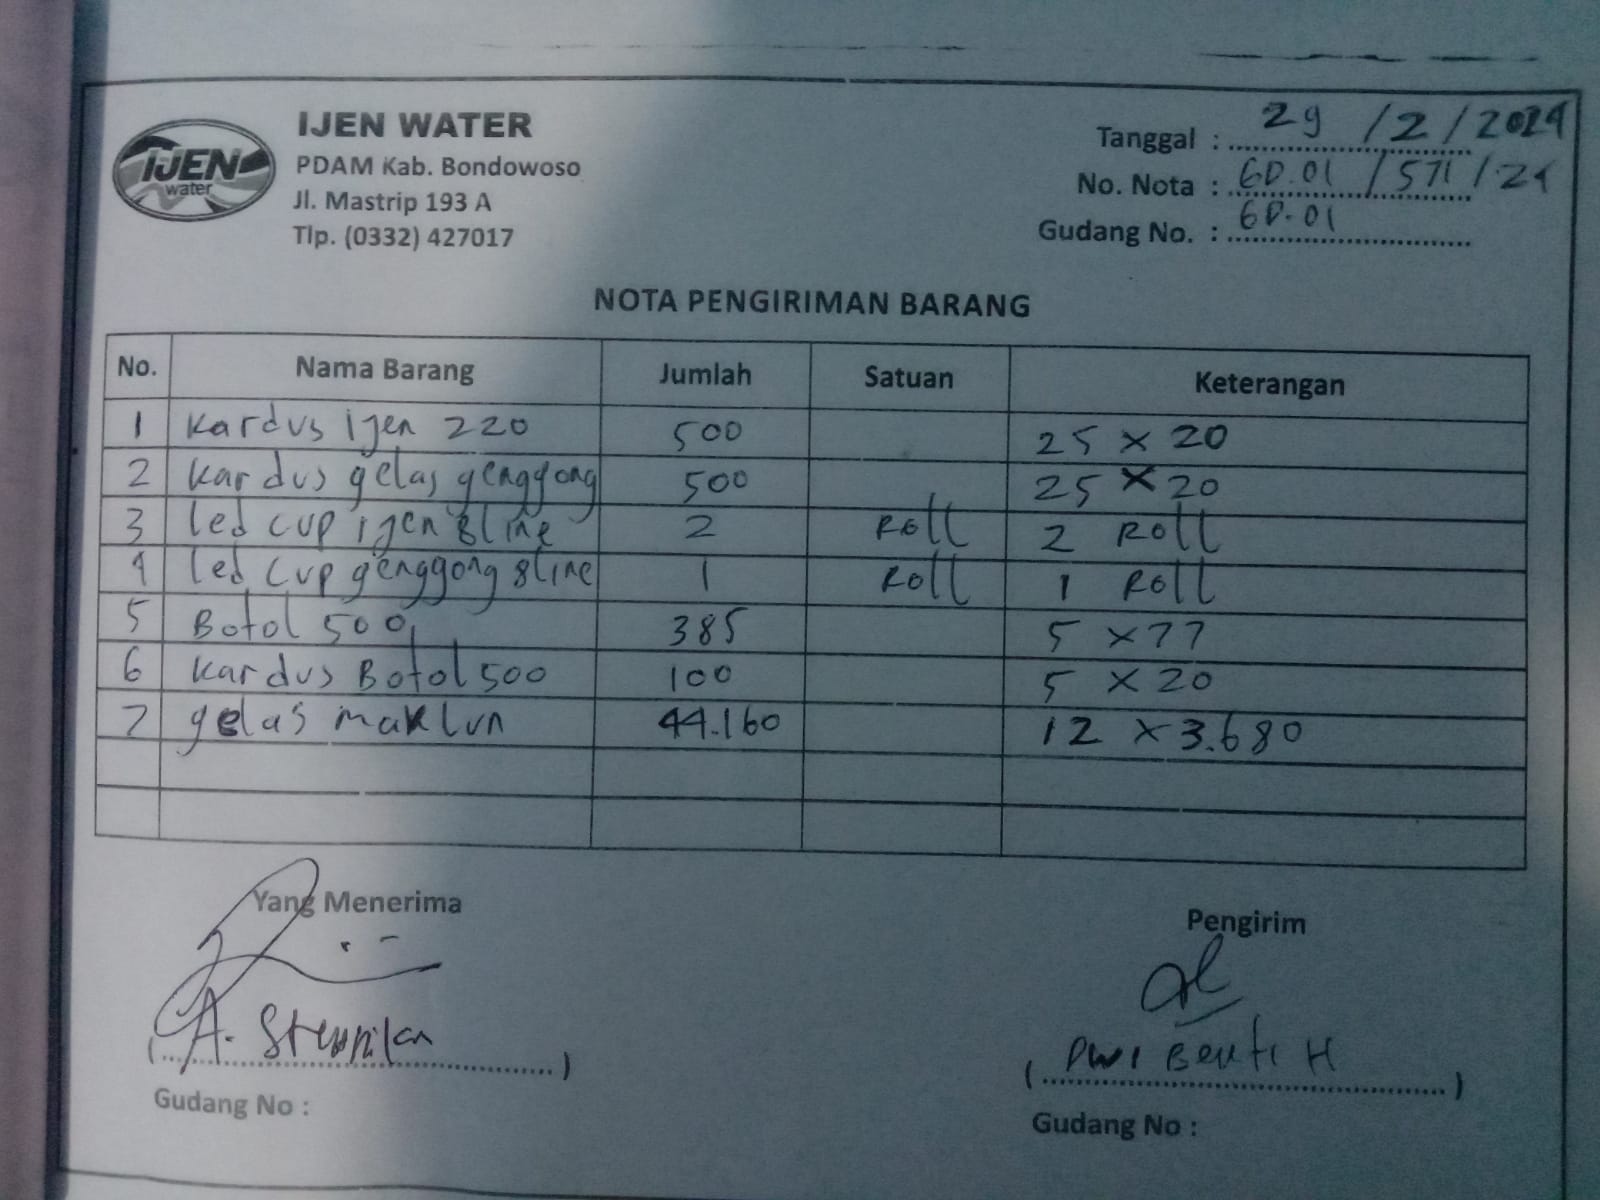 IJEN WATER
IJEN
water
PDAM Kab. Bondowoso
Jl. Mastrip 193 A
Tlp. (0332) 427017
Tanggal : 29 / 2 / 2024
No. Nota : GD.01 / 571 / 24
Gudang No. : GD.01
NOTA PENGIRIMAN BARANG
No. Nama Barang Jumlah Satuan Keterangan
1 Kardus Ijen 220 500 25 x 20
2 Kardus gelas genggong 500 25 x 20
3 led cup ijen 8 line 2 Roll 2 Roll
4 led cup genggong 8 line 1 Roll 1 Roll
5 Botol 500 385 5 x 77
6 Kardus Botol 500 100 5 x 20
7 gelas maklun 44.160 12 x 3.680
Yang Menerima
Pengirim
( A. )
( Dwi H )
Gudang No :
Gudang No :